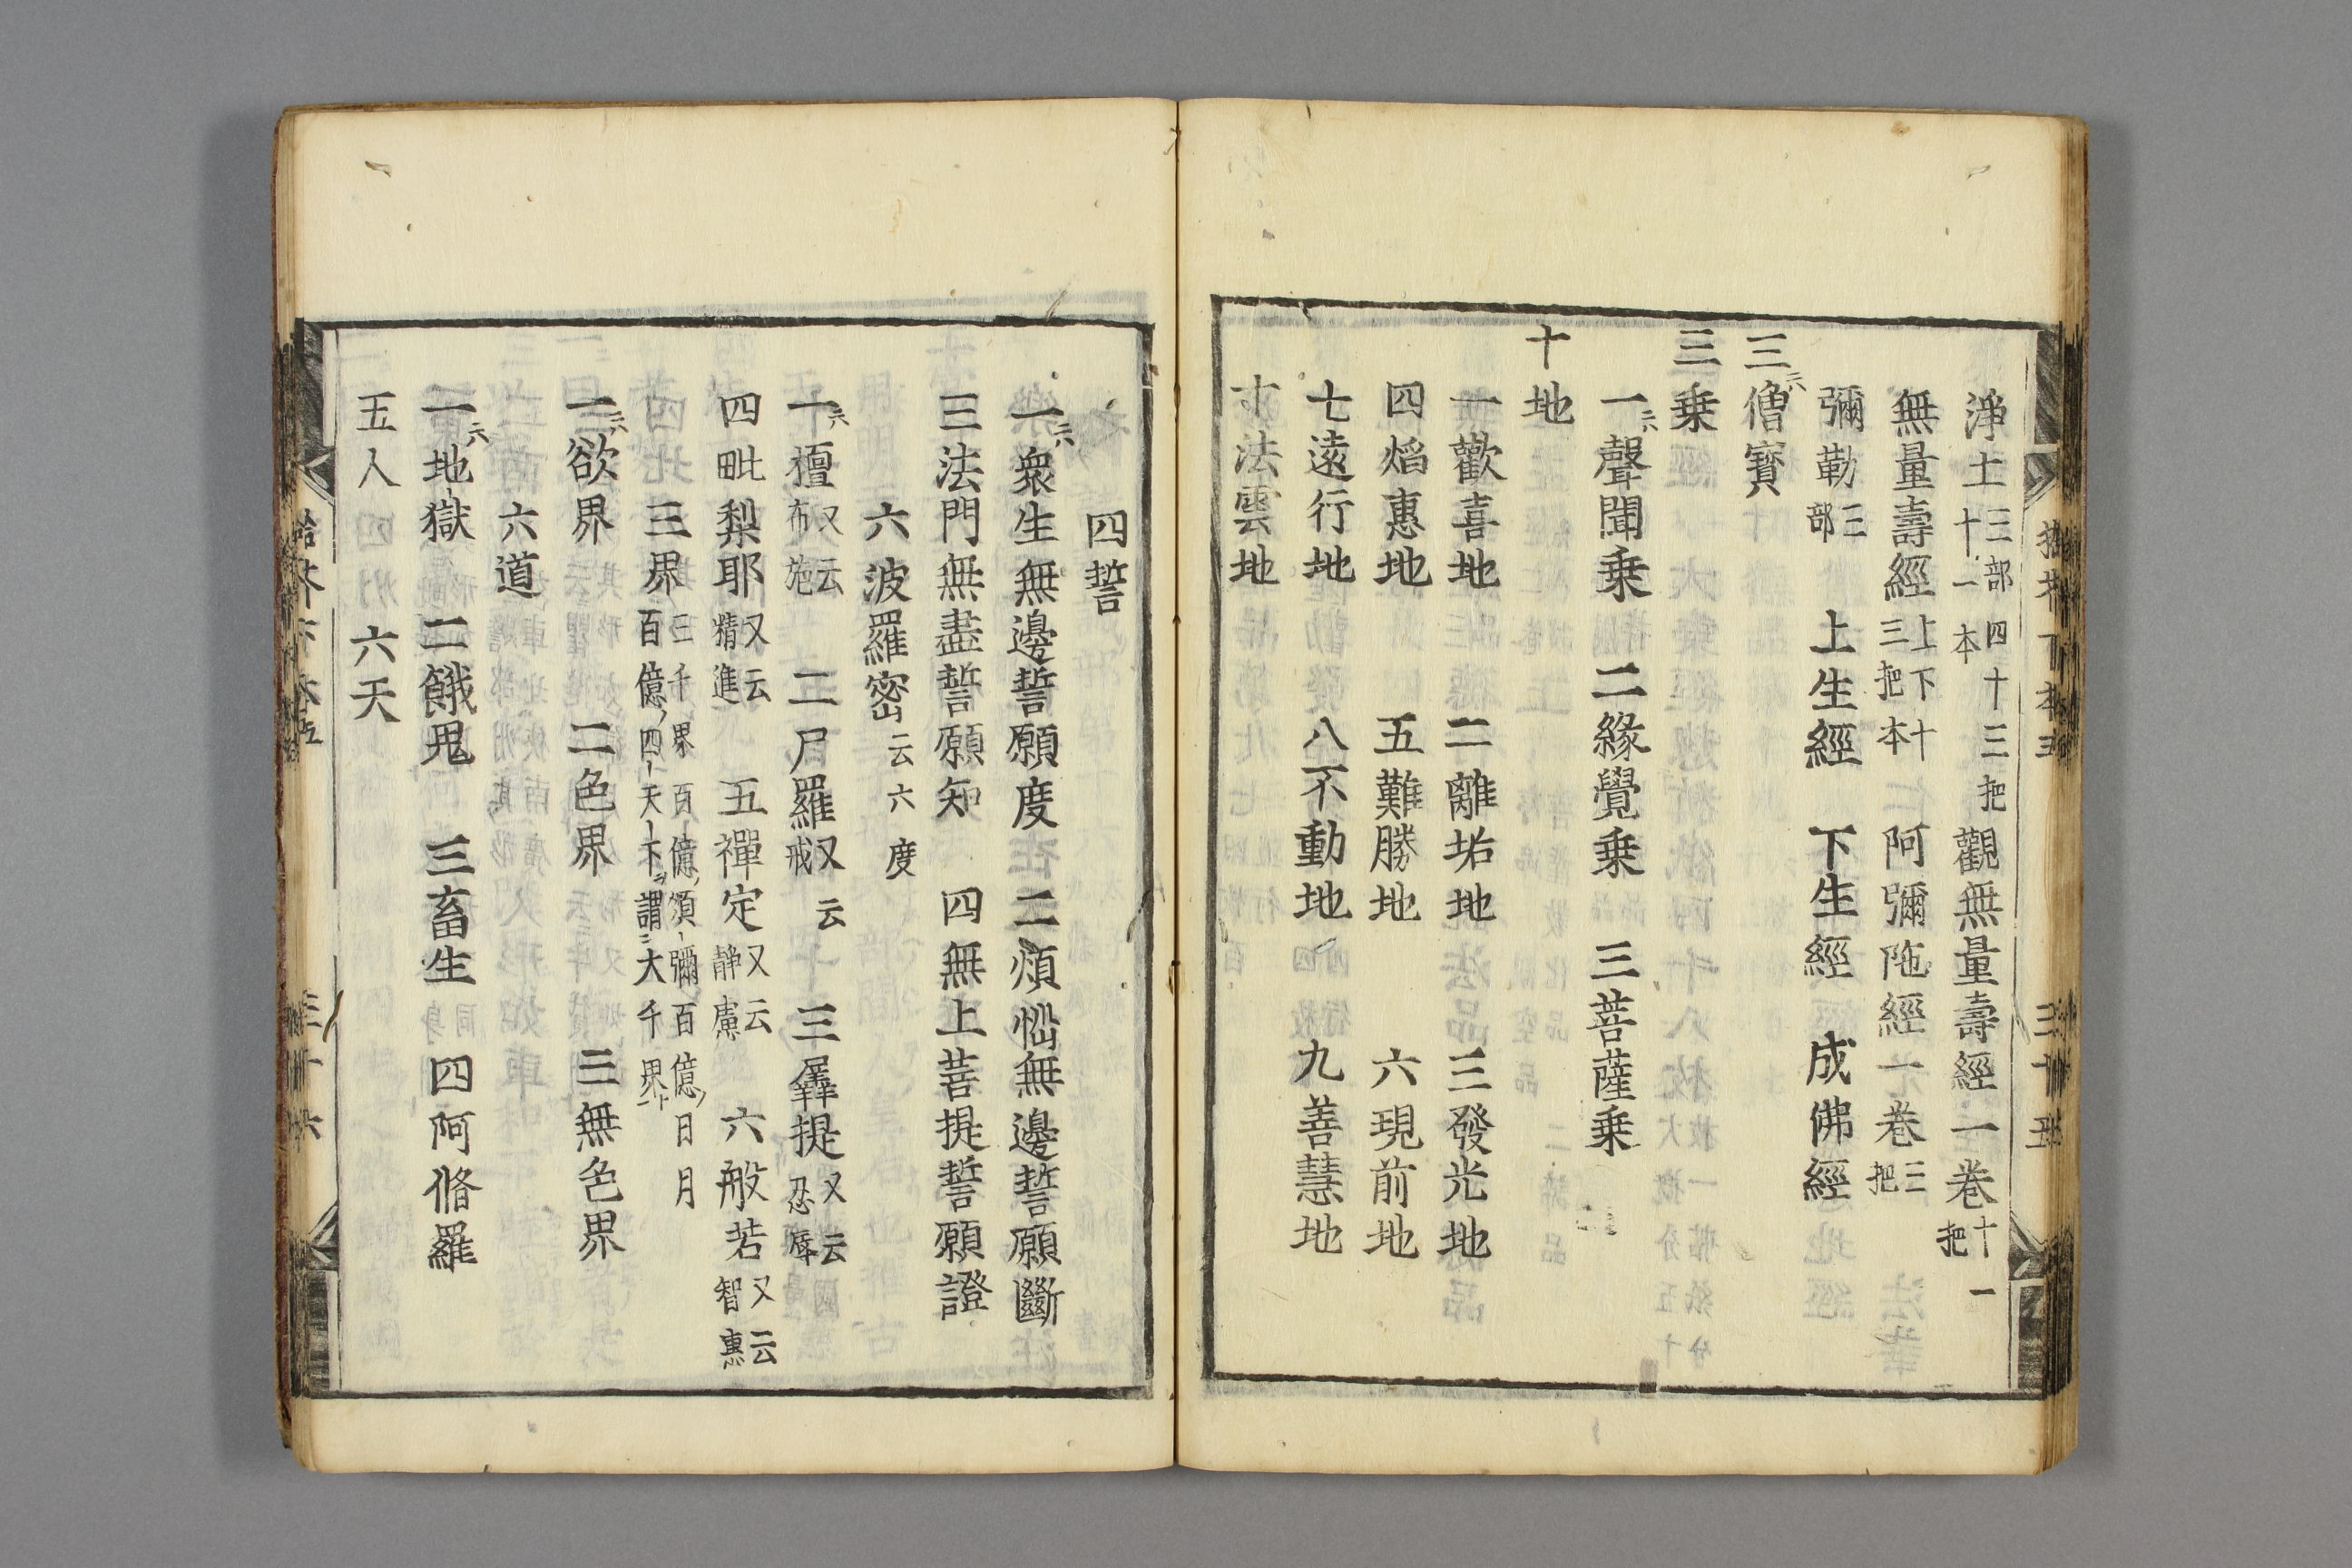 淨土三部四十三把十一本 觀無量壽經一卷十一把
無量壽經上下十三把本 阿彌陁經一卷三把
彌勒三部 上生經 下生經 成佛經
三僧寶
三乘
一聲聞乘 二緣覺乘 三菩薩乘
十地
一歡喜地 二離垢地 三發光地
四焰惠地 五難勝地 六現前地
七遠行地 八不動地 九善慧地
十法雲地
四誓
一衆生無邊誓願度 二煩惱無邊誓願斷
三法門無盡誓願知 四無上菩提誓願證
六波羅密云六度
一檀又云布施 二尸羅又云戒 三羼提又云忍辱
四毗梨耶又云精進 五禪定又云靜慮 六般若又云智惠
三界三千界百億須彌百億日月百億四天下謂大千界
一欲界 二色界 三無色界
六道
一地獄 二餓鬼 三畜生 四阿脩羅
五人 六天